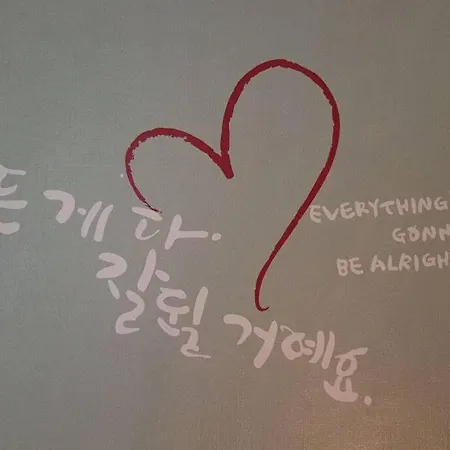 든 게 다.
잘 될 거예요.
EVERYTHING
GONN
BE ALRIGH